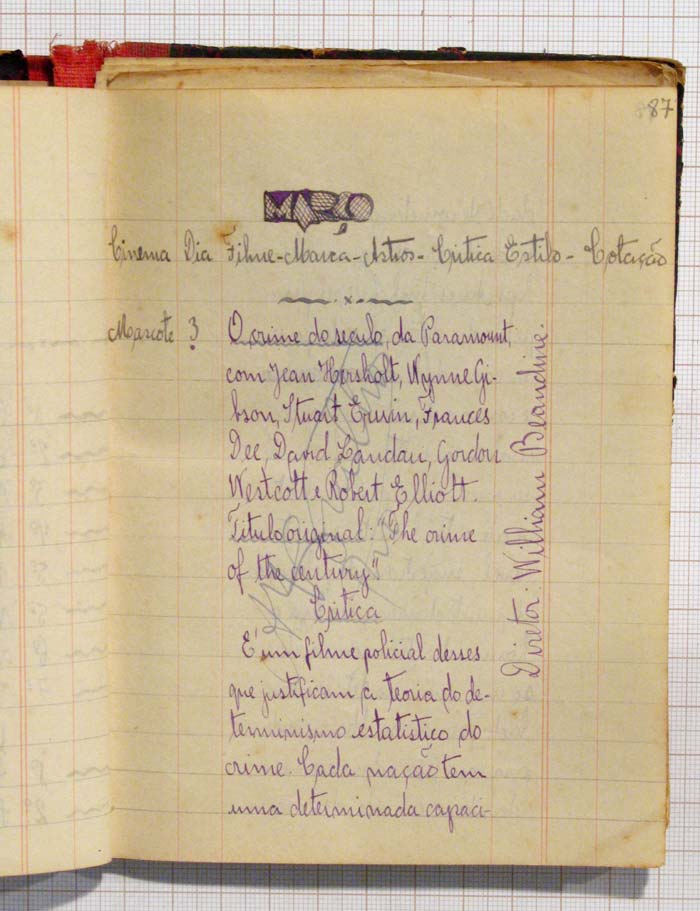 87
MARÇO
Cinema Dia Filme-Marca-Astros-Crítica Estilo - Cotação
Mascote 3 O crime do seculo, da Paramount,
com Jean Hersholt, Wynne Gi-
bson, Stuart Erwin, Frances
Dee, David Landau, Gordon
Westcott e Robert Elliott.
Titulo original: "The crime
of the century"
Crítica
É um filme policial desses
que justificam a teoria do de-
terminismo estatistico do
crime. Cada nação tem
uma determinada capaci-
Diretor: William Beaudine.